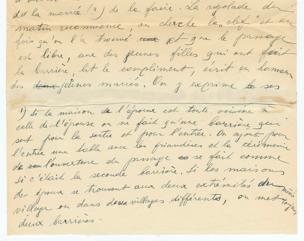 du marié (1) de la faire. La rigolade du
matin recommence, on cherche la clef et une
fois qu'on l'a trouvé et que le passage
est libre, une des jeunes filles qui ont fait
la barrière, lit le compliment, écrit en l'honneur
des mariés. On y exprime ses
1) Si la maison de l'épouse est toute voisine à
celle de l'époux on ne fait qu'une barrière qui
sert pour la sortie et pour l'entrée. On ajoute pour
l'entrée une belle avec les girandières et la cérémonie
de l'ouverture du passage se fait comme
si c'était la seconde barrière. Si les maisons
des époux se trouvent aux deux extrémités du même
village ou dans deux villages différents, on met
deux barrières.